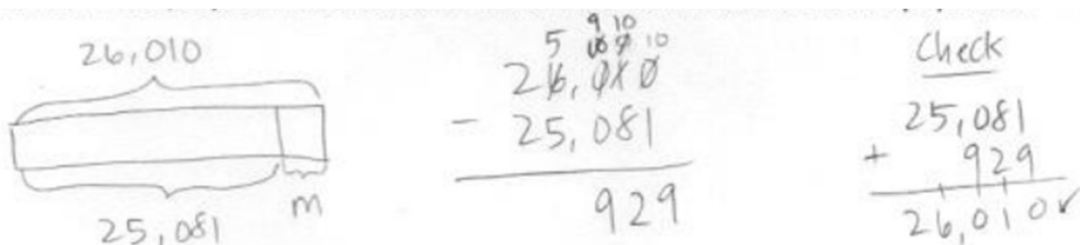 26,010
25,081
m
9 10
5 10 0 10
26,010
- 25,081
929
Check
25,081
+ 929
26,010 ✓